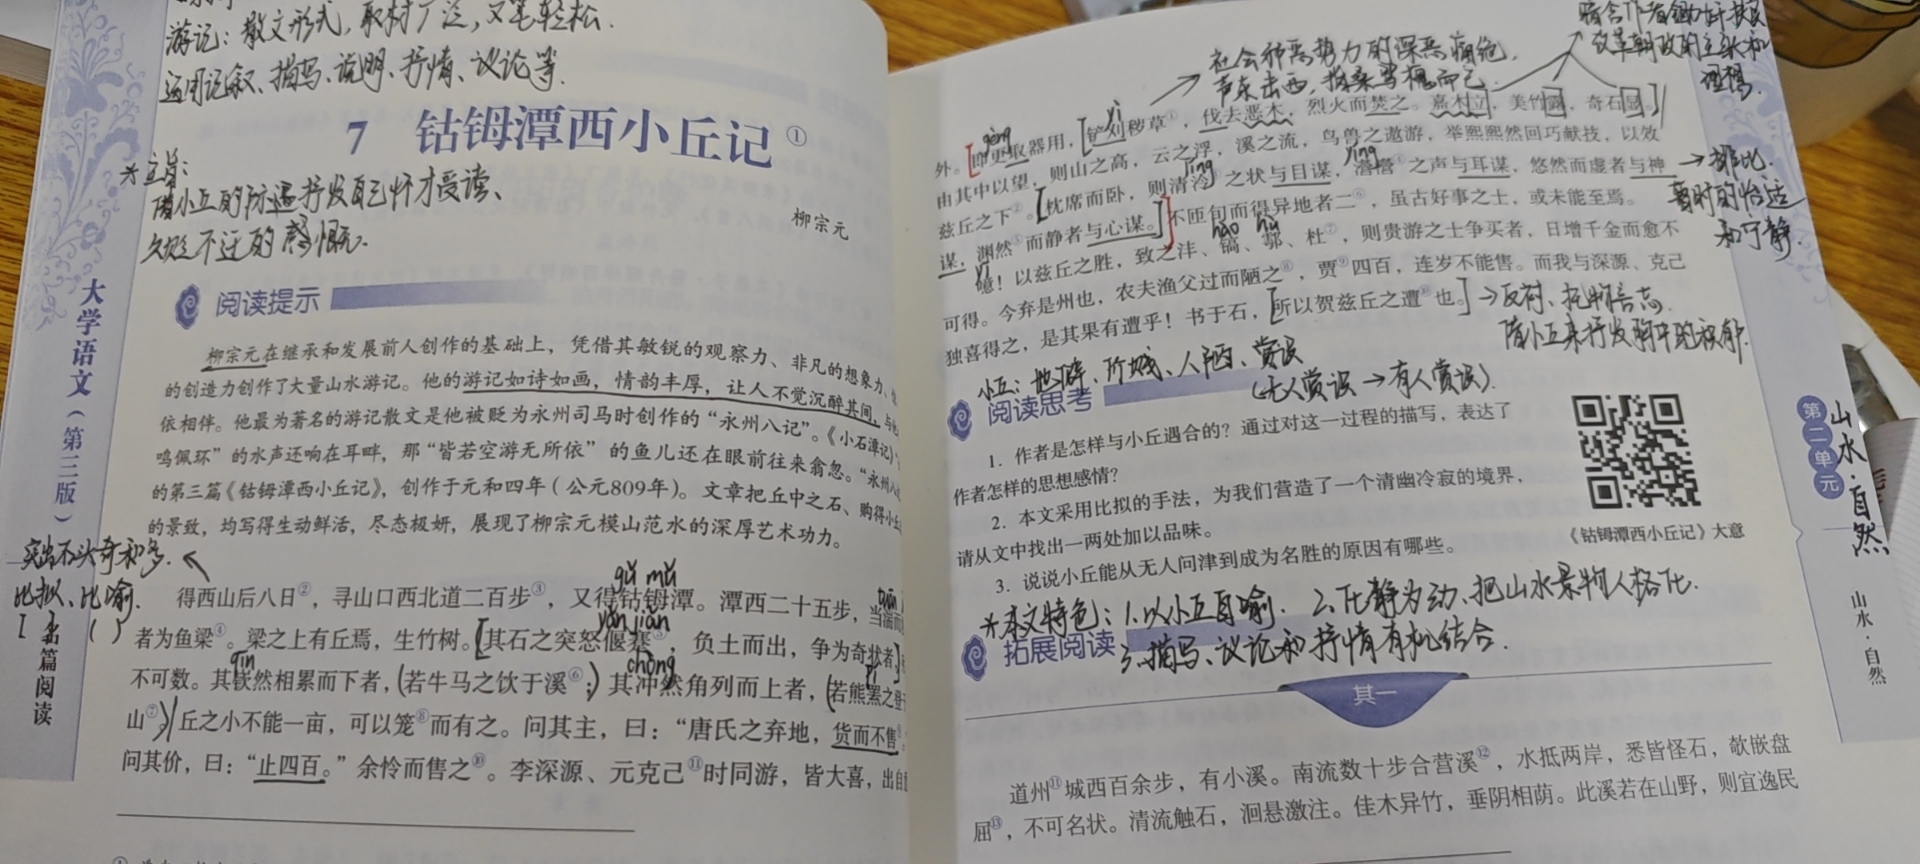 游记：散文形式，取材广泛，文笔轻松.
运用记叙、描写、说明、抒情、议论等.
7 钴鉧潭西小丘记①
*主旨：
借小丘的际遇抒发自己怀才受谗、
久贬不迁的感慨.
柳宗元
大学语文（第三版）
阅读提示
柳宗元在继承和发展前人创作的基础上，凭借其敏锐的观察力、非凡的想象力、
的创造力创作了大量山水游记。他的游记如诗如画，情韵丰厚，让人不觉沉醉其间，与
依相伴。他最为著名的游记散文是他被贬为永州司马时创作的“永州八记”。《小石潭记》
鸣佩环”的水声还响在耳畔，那“皆若空游无所依”的鱼儿还在眼前往来翕忽。“永州八
的第三篇《钴鉧潭西小丘记》，创作于元和四年（公元809年）。文章把丘中之石、购得小丘
的景致，均写得生动鲜活，尽态极妍，展现了柳宗元模山范水的深厚艺术功力。
突出石头奇和多.
比拟、比喻.
[ ] ( )
名篇阅读
gǔ mǔ
得西山后八日②，寻山口西北道二百步③，又得钴鉧潭。潭西二十五步，当湍而
yǎn jiǎn
者为鱼梁④。梁之上有丘焉，生竹树。[其石之突怒偃蹇⑤，负土而出，争为奇状者]
qīn chōng pí
不可数。其嵚然相累而下者，(若牛马之饮于溪⑥；)其冲然角列而上者，(若熊罴之登
山⑦。)丘之小不能一亩，可以笼⑧而有之。问其主，曰：“唐氏之弃地，货而不售⑨
问其价，曰：“止四百。”余怜而售之⑩。李深源、元克己⑪时同游，皆大喜，出自
社会邪恶势力的深恶痛绝.
声东击西，指桑骂槐而已
改革朝政的主张和
理想.
gēng yì
外。[即更取器用，[铲刈秽草①，伐去恶木，烈火而焚之。嘉木立，美竹露，奇石显。]
由其中以望，则山之高，云之浮，溪之流，鸟兽之遨游，举熙熙然回巧献技，以效
líng yíng
兹丘之下②。[枕席而卧，则清泠③之状与目谋，瀯瀯④之声与耳谋，悠然而虚者与神
谋，渊然⑤而静者与心谋。]不匝旬而得异地者二⑥，虽古好事之士，或未能至焉。
→排比.
暂时的怡适
和宁静.
yī hào hù
噫！以兹丘之胜，致之沣、镐、鄠、杜⑦，则贵游之士争买者，日增千金而愈不
可得。今弃是州也，农夫渔父过而陋之⑧，贾⑨四百，连岁不能售。而我与深源、克己
独喜得之，是其果有遭乎！书于石，[所以贺兹丘之遭⑩也。]→反衬、托物言志.
小丘：地僻、价贱、人陋、赏识
(无人赏识→有人赏识).
阅读思考
1. 作者是怎样与小丘遇合的？通过对这一过程的描写，表达了
作者怎样的思想感情？
2. 本文采用比拟的手法，为我们营造了一个清幽冷寂的境界，
请从文中找出一两处加以品味。
3. 说说小丘能从无人问津到成为名胜的原因有哪些。
《钴鉧潭西小丘记》大意
*本文特色：1.以小丘自喻. 2.化静为动、把山水景物人格化.
3.描写、议论和抒情有机结合.
拓展阅读
其一
道州⑪城西百余步，有小溪。南流数十步合营溪⑫，水抵两岸，悉皆怪石，欹嵌盘
屈⑬，不可名状。清流触石，洄悬激注。佳木异竹，垂阴相荫。此溪若在山野，则宜逸民
第二单元
山水·自然
山水·自然